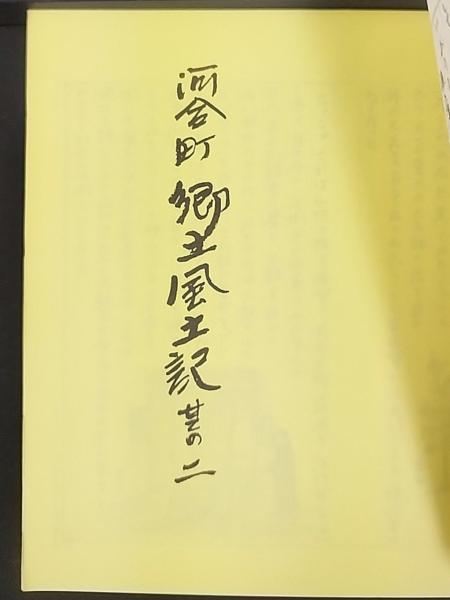 河合町 郷土風土記 其の二